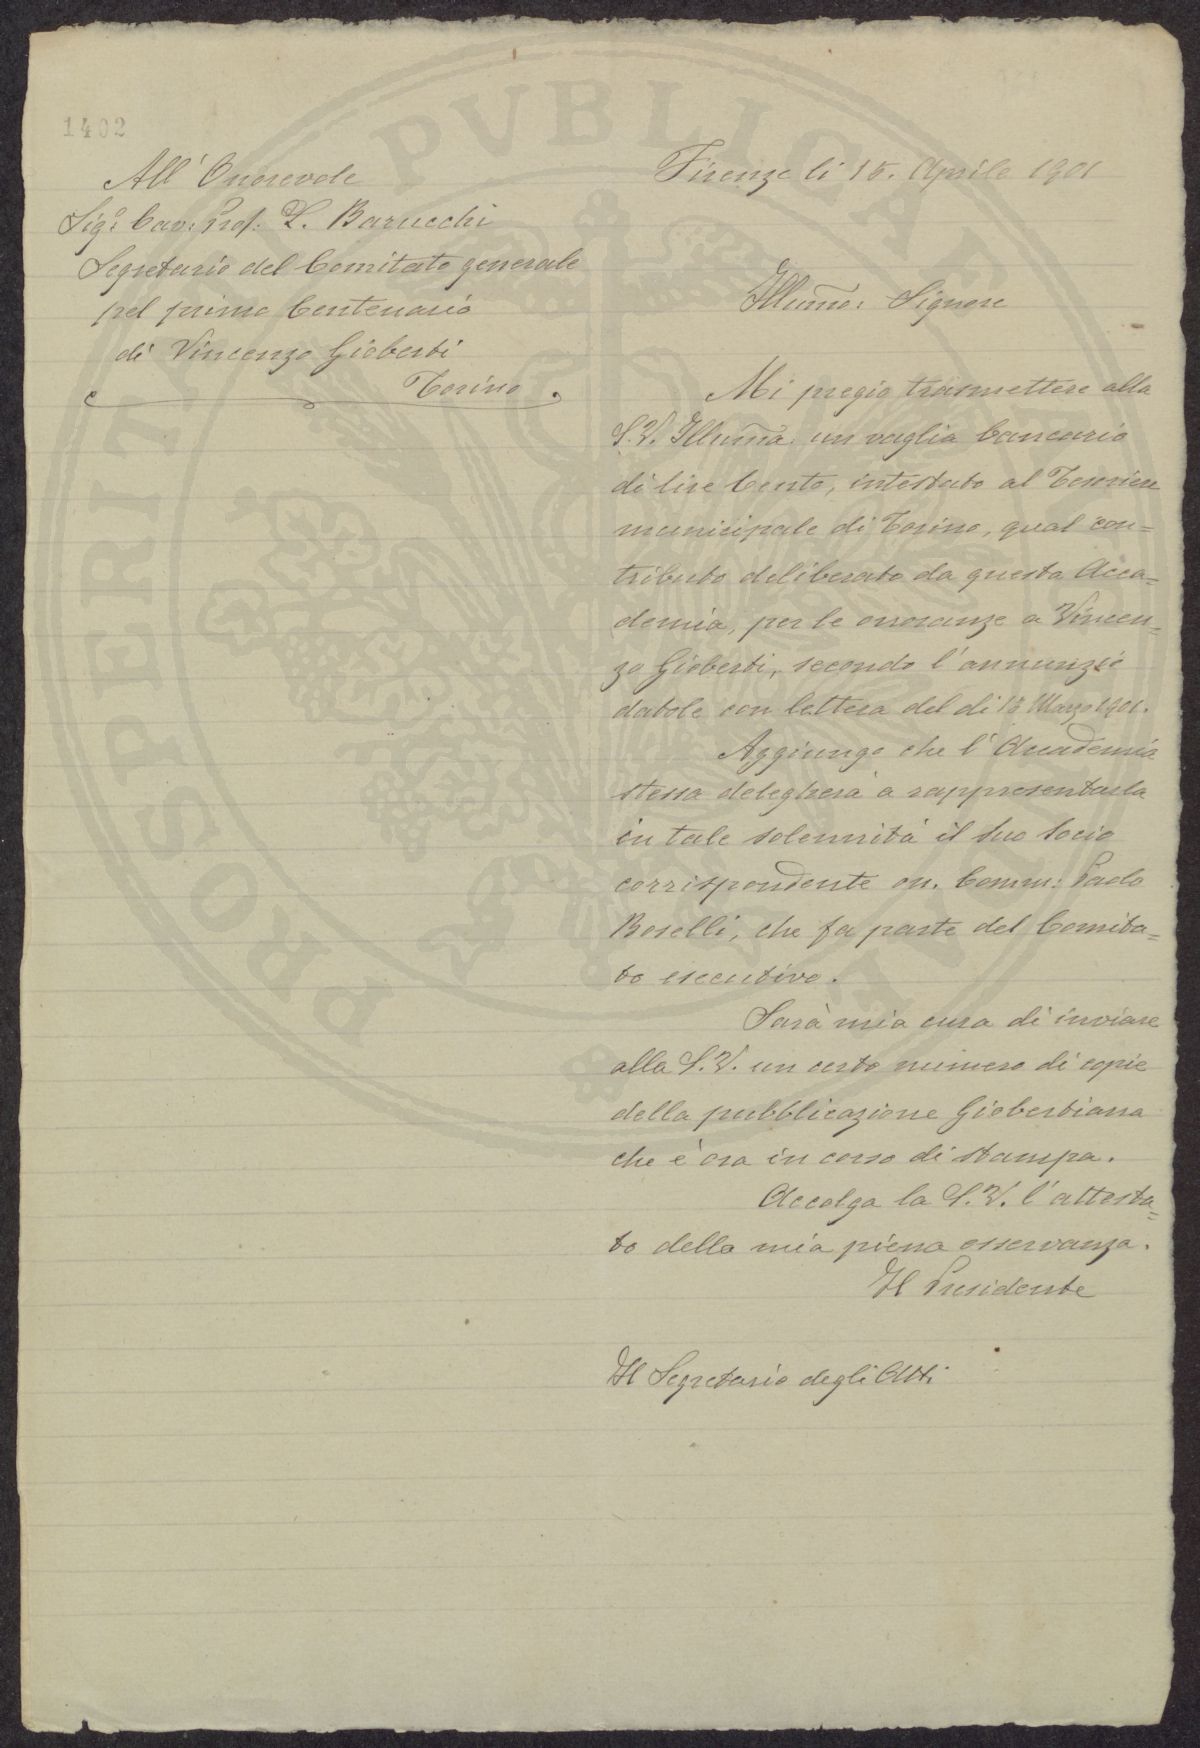 1402
All' Onorevole
Sigr. Cav. Prof. L. Barucchi
Segretario del Comitato generale
pel primo Centenario
di Vincenzo Gioberti
Torino
Firenze li 15. Aprile 1901
Illumo: Signore
Mi pregio trasmettere alla
S.V. Illuma. un vaglia bancario
di lire Cento, intestato al Tesoriere
municipale di Torino, qual con=
tributo deliberato da questa Acca=
demia, per le onoranze a Vincen=
zo Gioberti, secondo l'annunzio
datole con lettera del di 13 Marzo 1901.
Aggiungo che l'Accademia
stessa delegherà a rappresentarla
in tale solennità il suo Socio
corrispondente on. Comm: Paolo
Boselli, che fa parte del Comita=
to esecutivo.
Sarà mia cura di inviare
alla S.V. un certo numero di copie
della pubblicazione Giobertiana
che è ora in corso di stampa.
Accolga la S.V. l'attesta=
to della mia piena osservanza.
Il Presidente
Il Segretario degli Atti
PROSPERITATI PUBLICAE